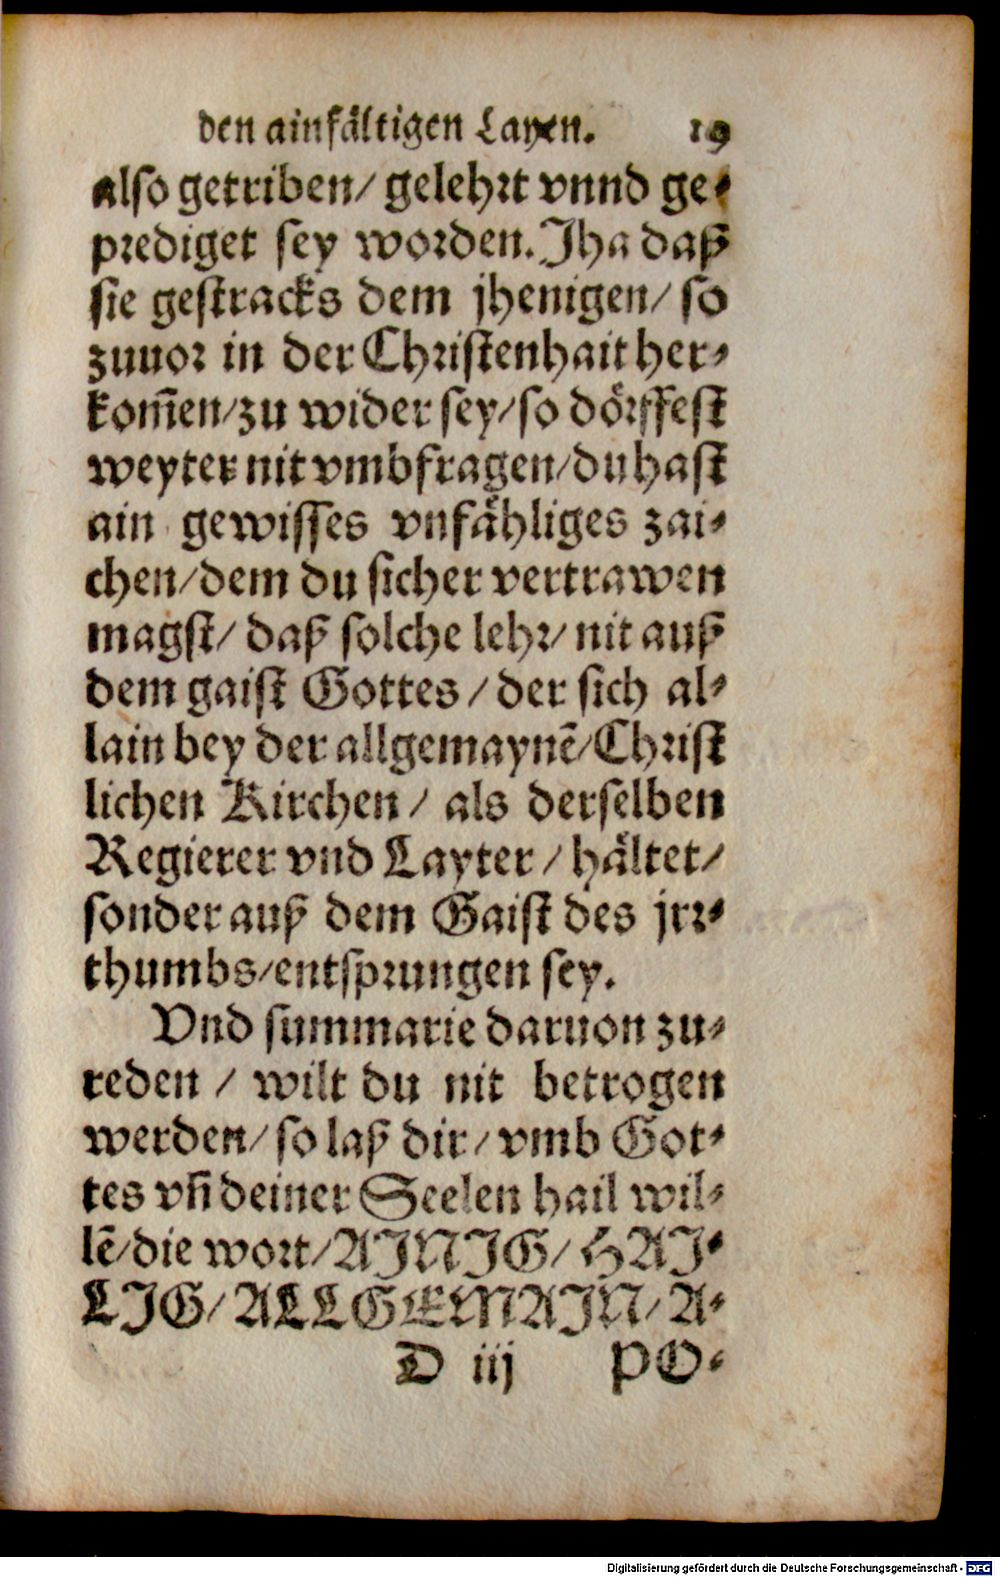 den ainfältigen Layen. 19
also getriben/ gelehrt vnnd ge-
prediget sey worden. Jha daß
sie gestracks dem jhenigen/ so
zuuor in der Christenhait her-
kom̃en/ zu wider sey/ so dörffest
weyter nit vmbfragen/ du hast
ain gewisses vnfähliges zai-
chen/ dem du sicher vertrawen
magst/ daß solche lehr/ nit auß
dem gaist Gottes/ der sich al-
lain bey der allgemaynẽ/ Christ
lichen Kirchen/ als derselben
Regierer vnd Layter/ hältet/
sonder auß dem Gaist des jrr-
thumbs/ entsprungen sey.
Vnd summarie daruon zu-
reden/ wilt du nit betrogen
werden/ so laß dir/ vmb Got-
tes vñ deiner Seelen hail wil-
lẽ/ die wort/ AJNJG/ HAJ-
LJG/ ALLGEMAJN/ A-
D iij PO-
Digitalisierung gefördert durch die Deutsche Forschungsgemeinschaft - DFG